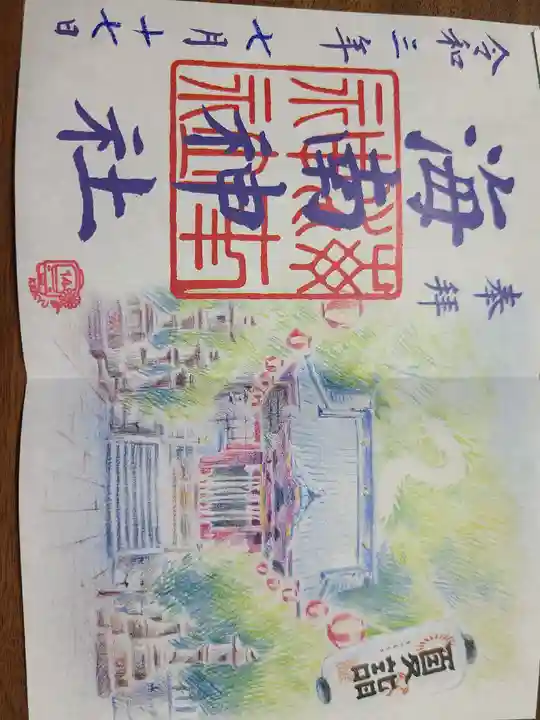 奉拝
海南神社
令和三年七月十七日
夏詣